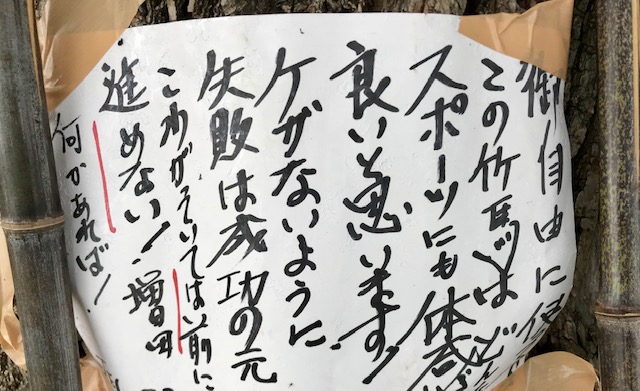 御自由に使
この竹馬は
スポーツにも体
良いと思います!
ケガないように
失敗は成功の元
こわがっていては前に
進めない!増田
何かあれば!